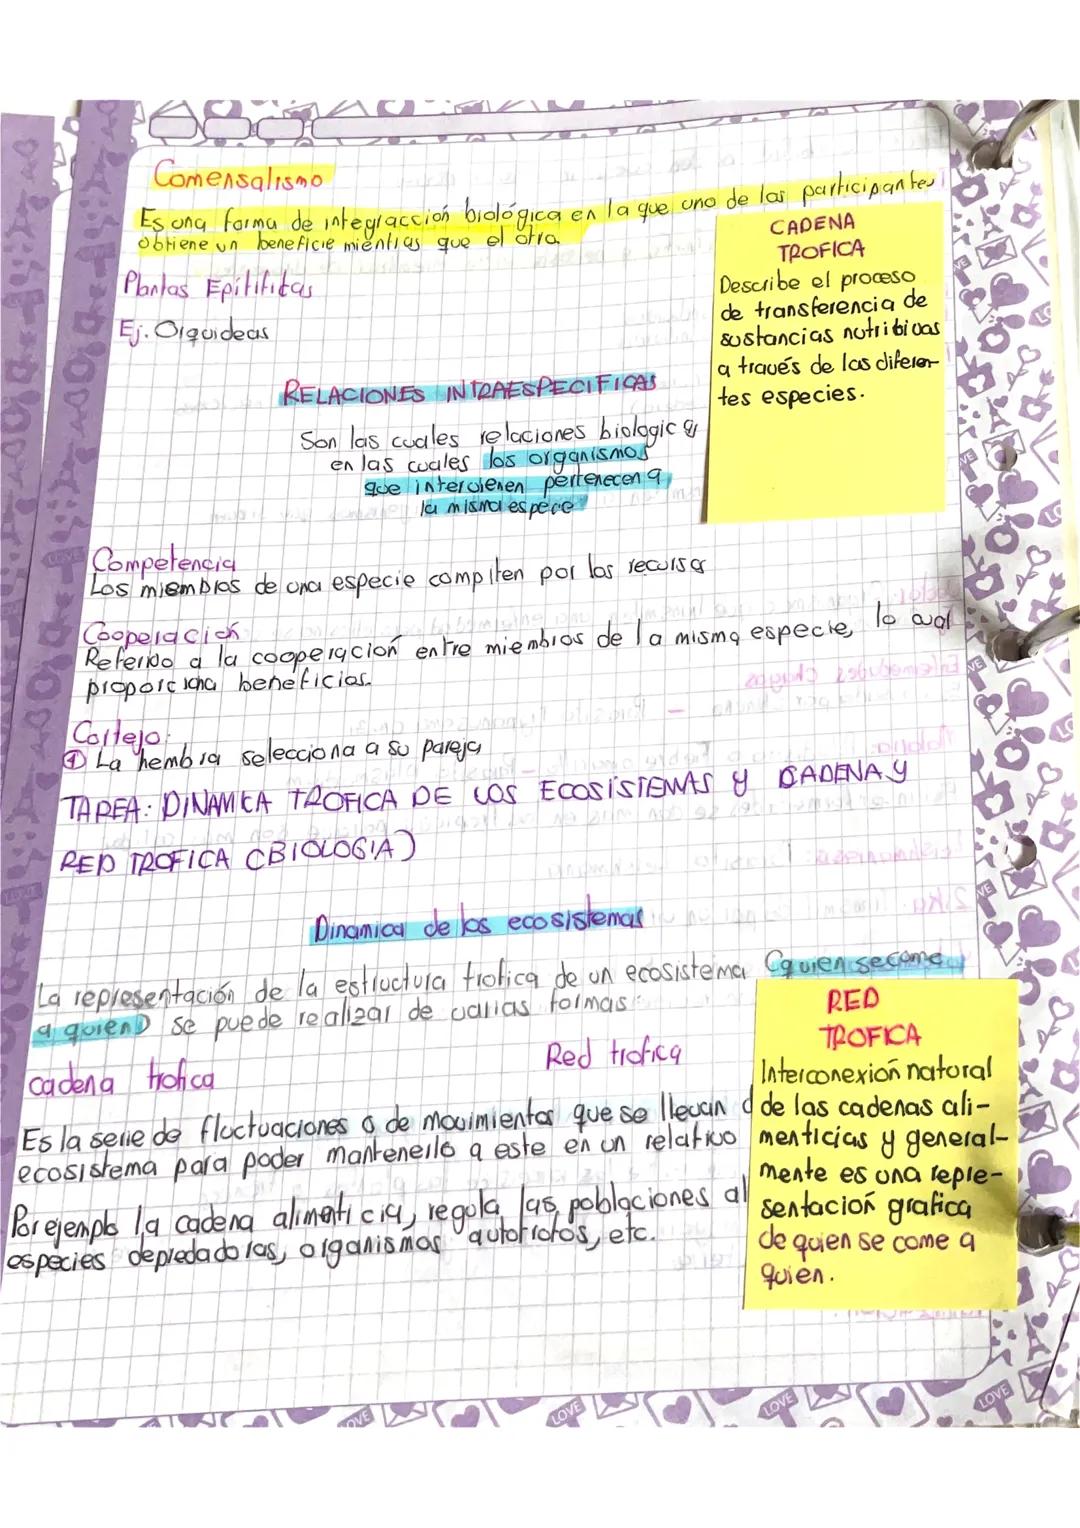 Comensalismo
Es una forma de integracción biológica en la que uno de los participantes
obtiene un beneficie mientras que el otro
Plantas Epítifitas
Ej. Orquideas
CADENA
TROFICA
Describe el proceso
de transferencia de
sustancias nutritivas
a través de las diferen-
tes especies.
RELACIONES INTRAESPECIFICAS
Son las cuales relaciones biologicas
en las cuales los organismos
que intervienen pertenecen a
la misma especie
Competencia
Los miembros de una especie compiten por los recursos
Cooperación
Referido a la cooperación entre miembros de la misma especie, lo cual
proporciona beneficios.
Cortejo:
① La hembra selecciona a su pareja
TAREA: DINAMICA TROFICA DE LOS ECOSISTEMAS Y CADENA Y
RED TROFICA (BIOLOGIA)
Dinamica de los ecosistemas
La representación de la estructura trofica de un ecosistema (quien se come
a quien) se puede realizar de varias formas:
cadena trofica
Red trofica
Es la serie de fluctuaciones o de movimientos que se llevan
ecosistema para poder mantenerlo a este en un relativo
Por ejemplo la cadena alimenticia, regula las poblaciones al
especies depredadoras, organismos autotrofos, etc.
RED
TROFICA
Interconexión natural
de las cadenas ali-
menticias y general-
mente es una repre-
sentación grafica
de quien se come a
quien.